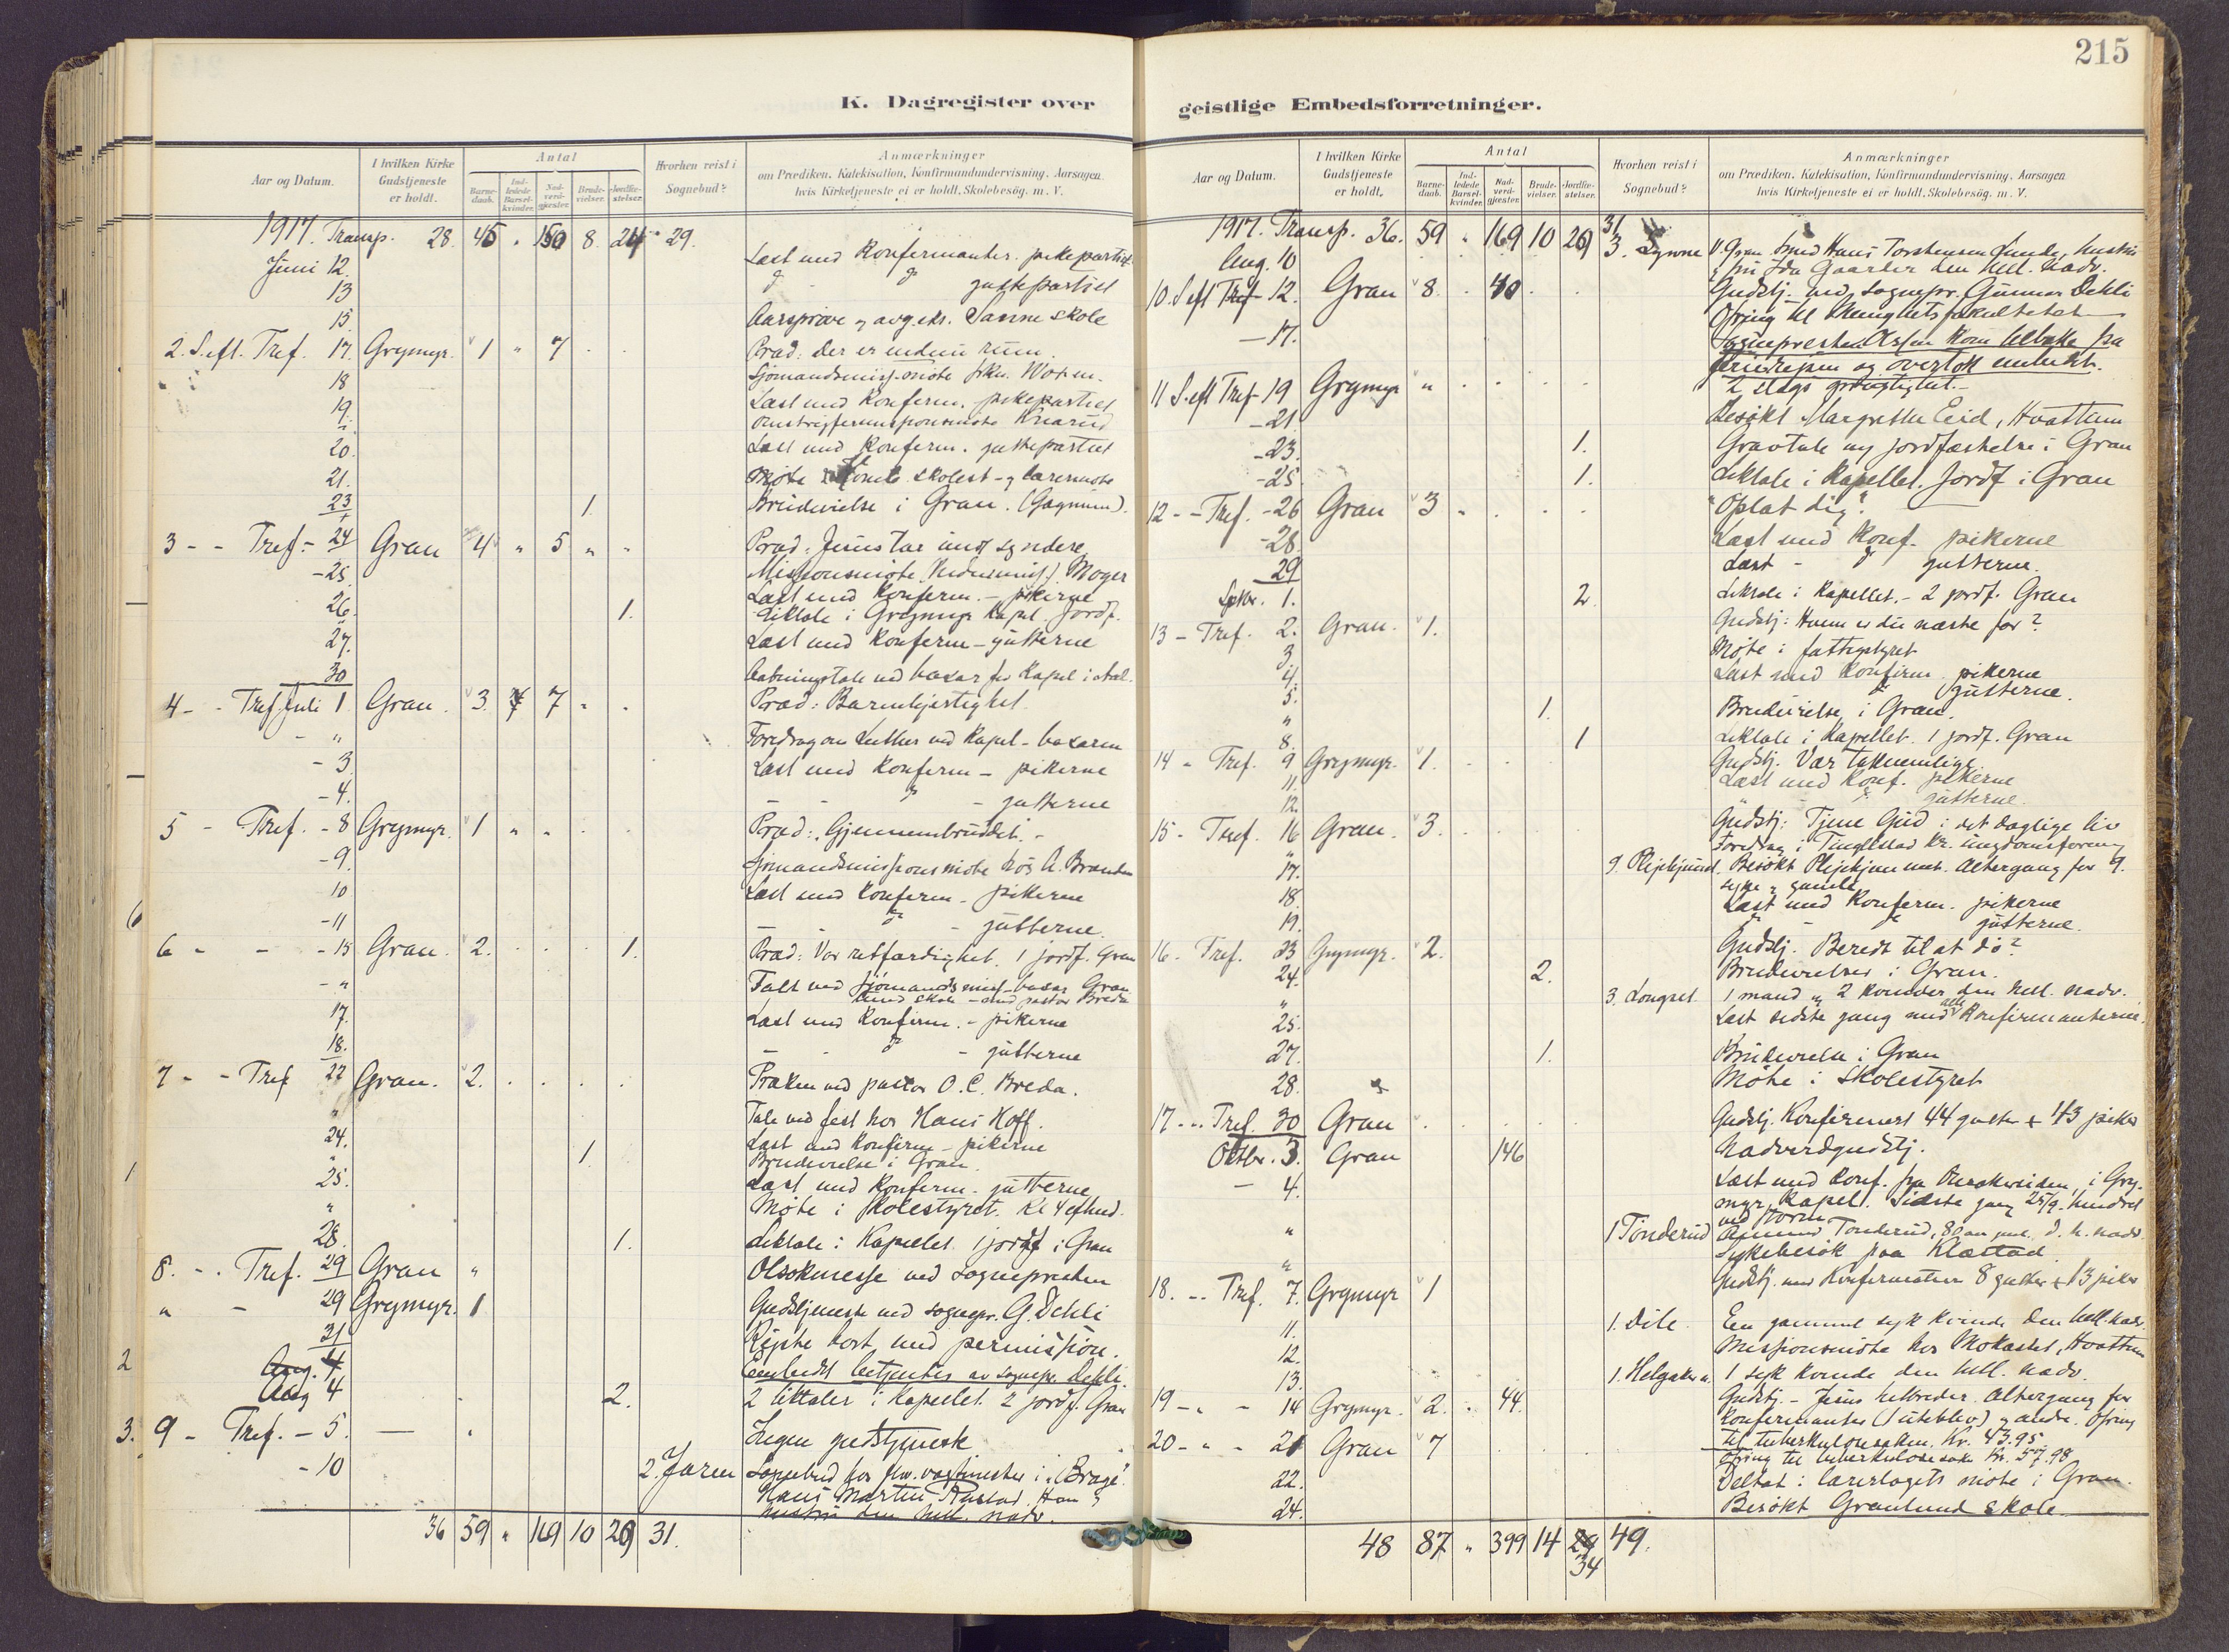 215
K. Dagregister over
Aar og Datum.
I hvilken Kirke Gudstjeneste er holdt.
Antal
Barne-daab.
Ind-ledede Barsel-kvinder.
Nad-verd-gjester.
Brude-vielser.
Jordfæ-stelser.
Hvorhen reist i Sognebud?
Anmærkninger
om Prædiken, Katekisation, Konfirmandundervisning, Aarsagen
hvis Kirketjeneste ei er holdt, Skolebesög. m. V.
1917. Transp. 28. 45 " 150 8. 24 29.
Juni 12. Læst med Konfirmanter. pikepartiet
13 guttepartiet
15. Aarsprøve og avg.eks. Sanne skole
2. S. eft. Tref. 17. Grymyr. 1 " 7 Præd: Der er endnu rum.
18 Sjømandsmiss.møte
19. Læst med Konferm. pikepartiet
20. Læst med Konferm. guttepartiet
21. Møte skolest- og lærermøte
23 1. Brudevielse i Gran.
3 - - Tref. - 24 Gran 4 " 5 " " Præd: Jesus tar imot syndere
- 25. Missionsmøte Moger
26. Læst med Konferm. - pikerne
" 1. Liktale i Grymyr kapel. Jordf.
27. Læst med Konferm - gutterne
30 Aabningstale ved basar for Kapel i
4 - - Tref. Juli 1 Gran. 3. 7 Præd: Barmhjertighet.
- " Foredrag om Luther ved Kapel-basaren
- 3. Læst med Konferm - pikerne
- 4. - gutterne
5 - Tref. - 8 Grymyr. 1 " " Præd: "Gjennembruddet". -
- 9. Sjømandsmissionsmøte hos A. Branden
10 Læst med Konferm - pikerne
- 11 - gutterne.
6 - - - 15 Gran. 2. 1. Præd: Vor retfærdighet. 1 jordf. Gran
- " Talt ved Sjømandsmiss-basar Gran
17. Læst med Konfirm. - pikerne
18. - gutterne
7 - - Tref 22 Gran. 2. Præken ved pastor O. C. Breda.
" Tale ved fest hos Hans Hoff.
24. Læst med Konferm - pikerne
" 1. Brudevielse i Gran.
25. Læst med Konferm. gutterne
" Møte i skolestyret. Kl 4 eftmd.
28. 1. Liktale i Kapellet. 1 jordf i Gran
8. - . Tref. 29 Gran " Olsokmesse ved sognepresten
" - 29 Grymyr. 1 Gudstjeneste ved sognepr. G. Dehli
31 Rejste bort med permission.
Aug. 4 Embedet betjentes av sognepr. Dehli.
Aug 4 2. 2 liktaler i Kapellet. 2 jordf. Gran
9 - Tref. - 5. — Ingen gudstjeneste
- 10 2. Jaren Sognebud hos fhv. vagtmester i "Brage"
Hans Martin Rustad. Han og
hustru den hell. nadv.
36 59 " 169 10 29 31.
geistlige Embedsforretninger.
Aar og Datum.
I hvilken Kirke Gudstjeneste er holdt.
Antal
Barne-daab.
Ind-ledede Barsel-kvinder.
Nad-verd-gjester.
Brude-vielser.
Jordfæ-stelser.
Hvorhen reist i Sognebud?
Anmærkninger
om Prædiken, Katekisation, Konfirmandundervisning, Aarsagen
hvis Kirketjeneste ei er holdt, Skolebesög. m. V.
1917. Transp. 36. 59 " 169 10 29 31
Aug. 10 3. Hans Torstensen Lunde, hustru
den hell. nadv.
10. S eft Tref 12. Gran 8. 40 Gudstj. ved sognepr. Gunnar Dehli
Ofring til Menighetsfakultetet
- 17. Sognepresten Olsen kom tilbake fra
feriereisen og overtok embedet.
11 S. eft Tref - 19 Grymyr " 2 slags
- 21. Besøkt Margrethe Eid, Hvattum
- 23. 1. Gravtale og jordfæstelse i Gran
- 25. 1. Liktale i Kapellet. Jordf i Gran
12 - - Tref. - 26 Gran 3 "Oplat dig".
- 28. Læst med Konf. pikerne
29 Læst - gutterne.
Septbr. 1. 2. Liktale i Kapellet. - 2 jordf. Gran
13 - Tref. 2. Gran. 1. Gudstj: Hvem er du næste for?
3. Møte i fattigstyret
4. Læst med Konfirm. pikerne
5. gutterne.
" 1. Brudevielse i Gran.
8. 1 Liktale i Kapellet. 1 jordf. Gran
14 - Tref. 9 Grymyr. 1. Gudstj. Vær taknemlige.
11. Læst med Konf. pikerne
12. gutterne
15 - Tref. 16 Gran. 3. Gudstj: Tjene Gud i det daglige liv
" Foredrag i Tingelstad Kr. ungdomsforening
17. 9. Plejehjemmet. Besøkt Plejehjemmet. Altergang for 9.
syke og gamle
18. Læst med Konferm. pikerne
19. gutterne.
16 - Tref. 23 Grymyr. 2. Gudstj. Beredt til at dø?
24. 2. Brudevielser i Gran.
" 3. Longset. 1 mand og 2 kvinder den hell. nadv.
25. Læst sidste gang med alle Konfirmanterne.
27. 1. Brudevielse i Gran
28. Møte i skolestyret
17 - - Tref. 30 Gran Gudstj. Konfirmert 44 gutter + 43 piker
Oktbr. 3. Gran 146 Nadverdgudstj.
- 4. Læst med Konf. fra i Gry-
myr Kapel. Sidste gang 25/9. hindret
ved storm
" 1 Tønderud Tønderud, 80 aar gml. d. h. nadv.
" Sykebesøk paa Klæstad.
18. - - Tref. 7. Grymyr 1 Gudstj. med Konfirmation 8 gutter + 13 piker
11. 1. Dile. En gammel syk kvinde den hell. nadv.
12. Missionsmøte hos Hvattum
13. 1. Helgaker 1 syk kvinde den hell. nadv.
19 - " - 14 Grymyr. 2. 44. Gudstj. - Jesus helbreder. Altergang for
Konfirmanter (1 uteblev) og andre. Ofring
til tuberkulosesaken. Kr. 43.95
20 - " - 21 Gran 7 Ofring til tuberkulosesak Kr. 57.98
22. Deltat i lærerlagets møte i Gran.
24. Besøkt Granlund skole
48 87 " 399 14 29 49.
34